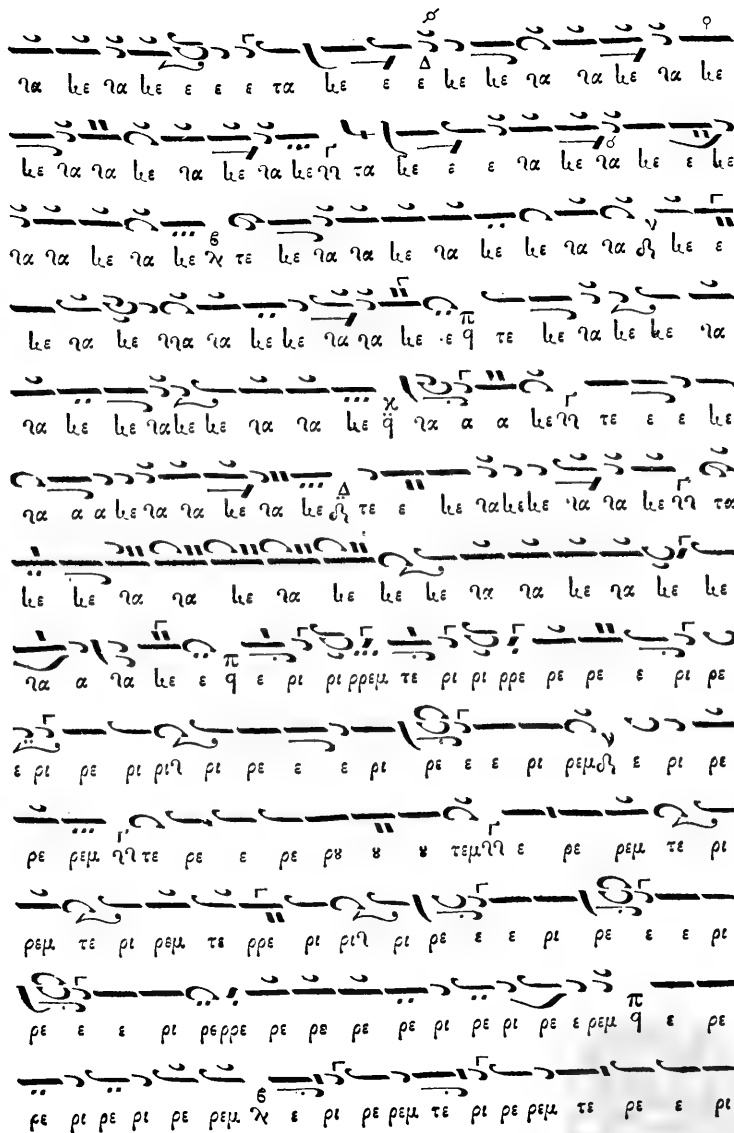 γα κε γα κε ε ε ε τα κε ε ε κε κε γα γα κε γα κε
κε γα γα κε γα κε γα κε γγ τα κε ε ε γα κε γα κε ε κε
γα γα κε γα κε τε κε γα γα κε γα κε κε γα γα κε ε
κε γα κε γγα γα κε κε γα γα κε ε π q τε κε γα κε κε γα
γα κε κε γα κε κε γα γα κε γα α α κε γγ τε ε ε κε
γα α α κε γα γα κε γα κε τε ε κε γα κε κε γα γα κε γγ τα
κε κε γα γα κε γα κε κε κε γα γα κε γα κε κε
γα α γα κε ε π q ε ρι ρι ρρεμ τε ρι ρι ρρε ρε ρε ε ρι ρε
ε ρι ρε ρι ριγ ρι ρε ε ε ρι ρε ε ε ρι ρεμ ε ρι ρε
ρε ρεμ γγ τε ρε ε ρε ρȣ ȣ ȣ τεμ γγ ε ρε ρεμ τε ρι
ρεμ τε ρι ρεμ τε ρρε ρι ριγ ρι ρε ε ε ρι ρε ε ε ρι
ρε ε ε ρι ρε ρρε ρε ρε ρε ρε ρι ρε ρι ρε ε ρεμ π q ε ρε
ρε ρι ρε ρι ρε ρεμ ε ρι ρε ρεμ τε ρι ρε ρεμ τε ρε ε ρι